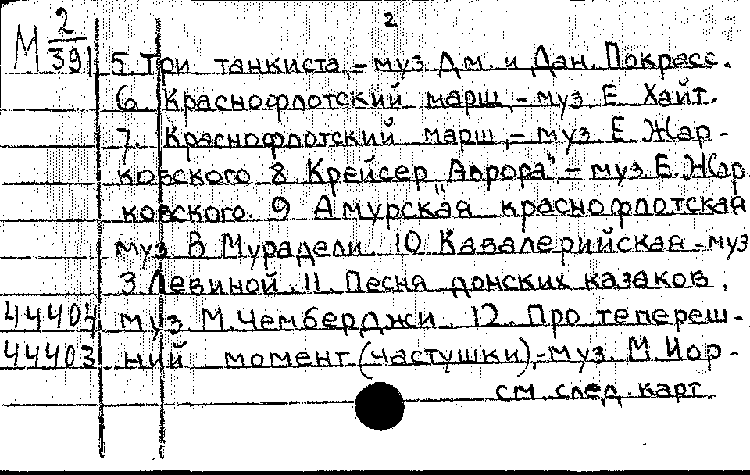 2
М 2/391
5. Три танкиста,-муз Дм. и Дан. Покрасс.
6. Краснофлотский марш,-муз Е. Хайт.
7. Краснофлотский марш,-муз. Е. Жар-
ковского 8 Крейсер "Аврора"-муз. Е. Жар
ковского. 9 Амурская краснофлотская
муз В Мурадели. 10 Кавалерийская-муз
З. Левиной. 11. Песня донских казаков,
44404 муз М. Чемберджи. 12. Про тепереш-
44403 ний момент (частушки),-муз. М. Иор-
см. след. карт